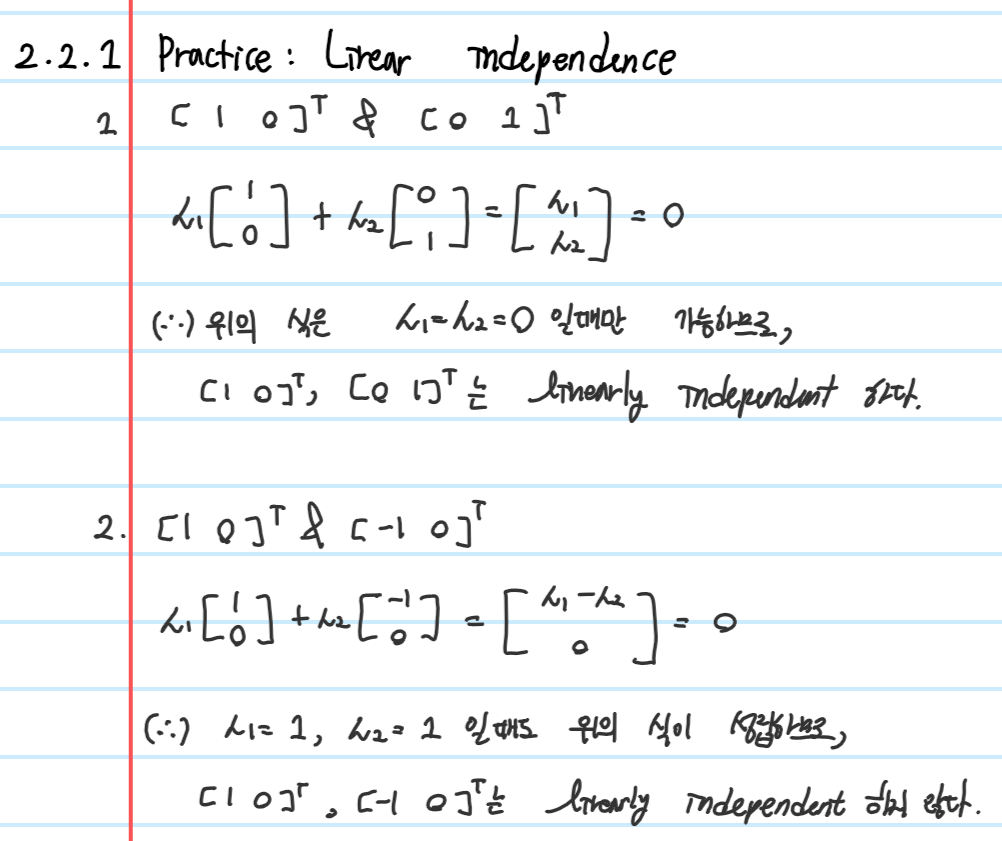 2.2.1 Practice: Linear independence
1 [1 0]ᵀ & [0 1]ᵀ
λ₁[1 0] + λ₂[0 1] = [λ₁ λ₂] = 0
(∴) 위의 식은 λ₁=λ₂=0 일때만 가능하므로,
[1 0]ᵀ, [0 1]ᵀ는 linearly independent 하다.
2. [1 0]ᵀ & [-1 0]ᵀ
λ₁[1 0] + λ₂[-1 0] = [λ₁-λ₂ 0] = 0
(∴) λ₁=1, λ₂=1 일때도 위의 식이 성립하므로,
[1 0]ᵀ, [-1 0]ᵀ는 linearly independent 하지 않다.